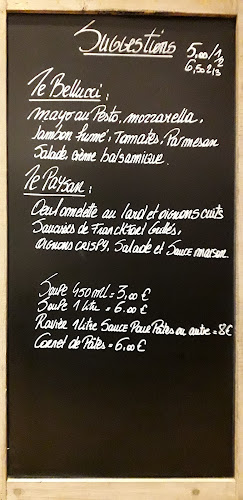 Suggestions 5,00/1/2
6,50 2/3
Le Bellucci :
mayo au Pesto, mozzarella,
Jambon fumé, Tomates, Parmesan
Salade. Crème balsamique.
Le Paysan :
Oeuf omelette au lard et oignons cuits
Saucisses de Francfort Grillés,
oignons crispy, Salade et Sauce maison.
Soupe 450 ml = 3,00 €
Soupe 1 Litre = 6.00 €
Ravier 1 Litre Sauce Pour Pâtes ou autre = 8€
Cornet de Pâtes = 6.00 €